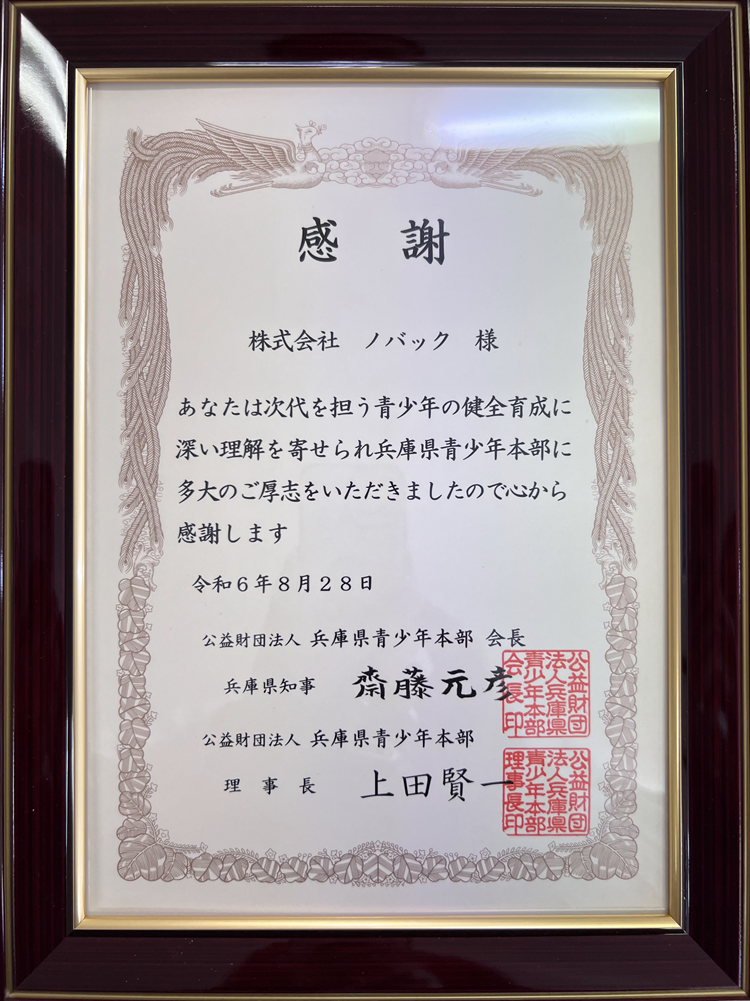 感 謝
株式会社 ノバック 様
あなたは次代を担う青少年の健全育成に
深い理解を寄せられ兵庫県青少年本部に
多大のご厚志をいただきましたので心から
感謝します
令和６年８月２８日
公益財団法人 兵庫県青少年本部 会長
兵庫県知事 齋藤元彦
公益財団法人兵庫県青少年本部会長印
公益財団法人 兵庫県青少年本部
理事長 上田賢一
公益財団法人兵庫県青少年本部理事長印